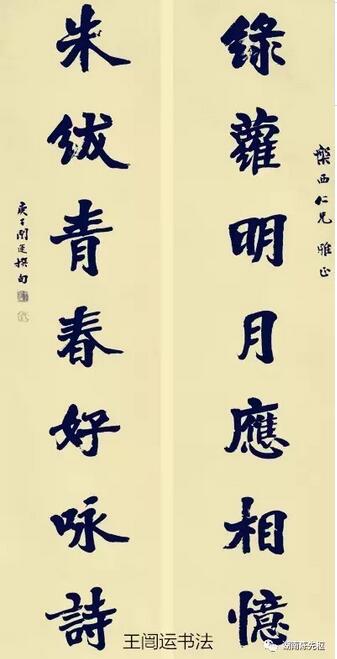 綠蘿明月應相憶
西仁兄 雅正
朱紱青春好咏詩
庚子闓運撰句
王闿运书法
湖南陈先枢